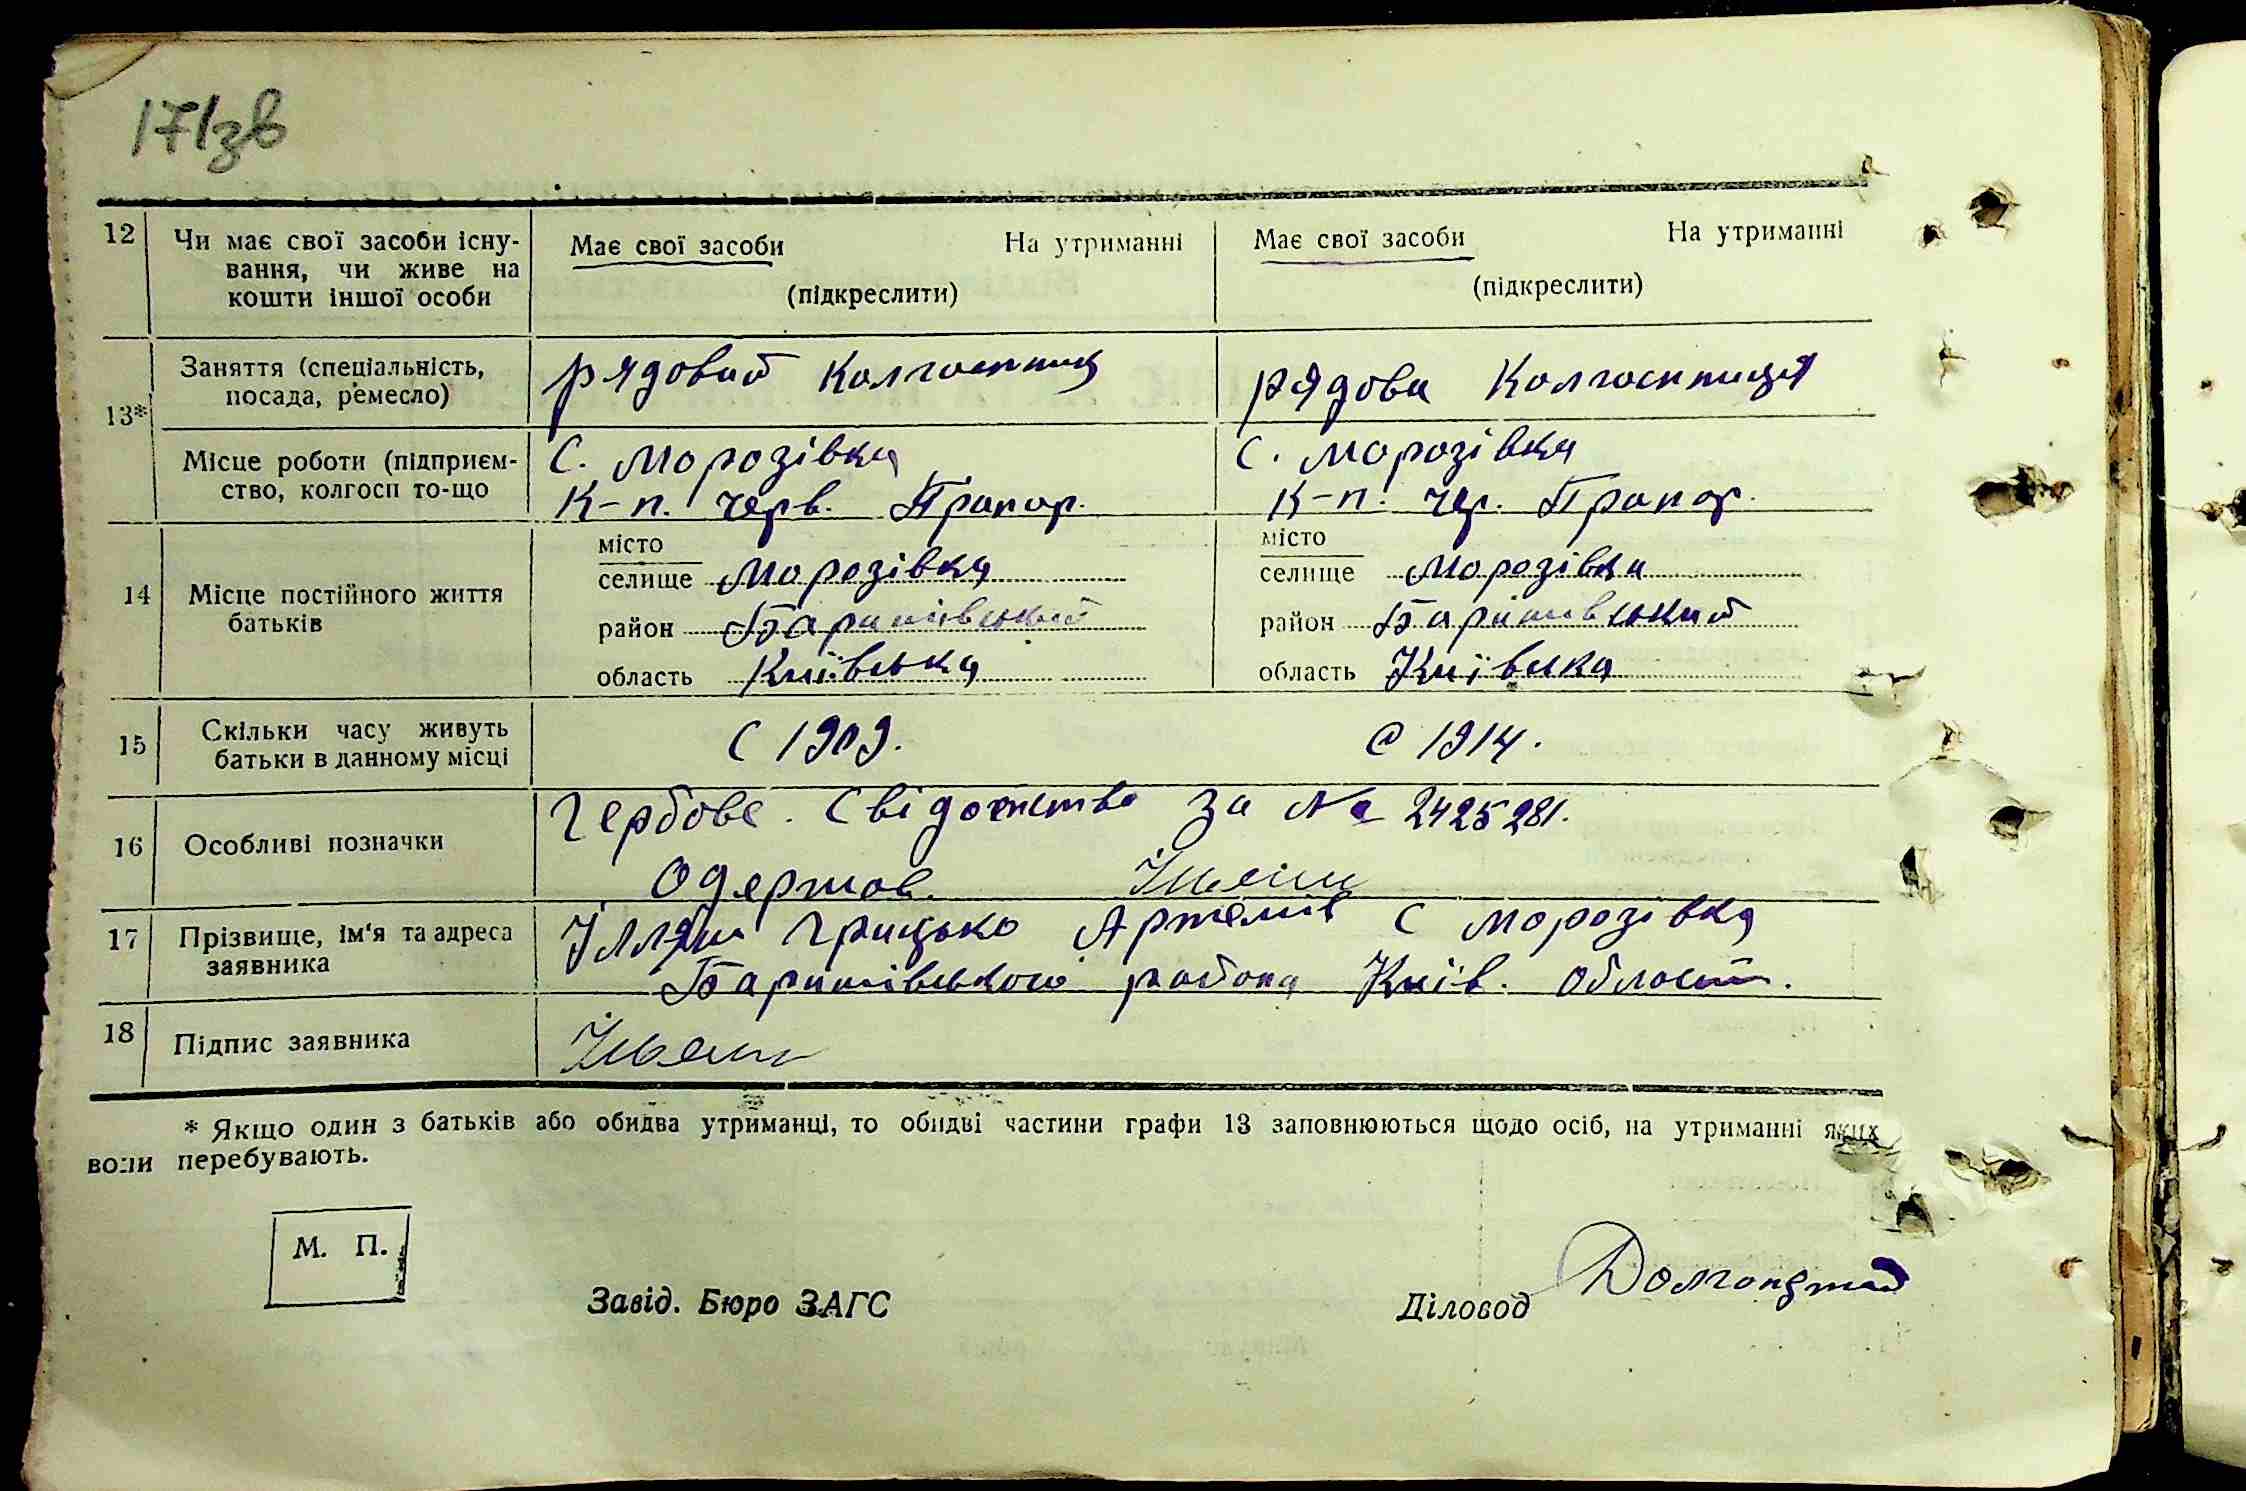 171зв
12 Чи має свої засоби існу- Має свої засоби На утриманні Має свої засоби На утриманні
вання, чи живе на
кошти іншої особи (підкреслити) (підкреслити)
Заняття (спеціальність, рядовий Колгоспниц рядова Колгоспниця
посада, ремесло)
13*
Місце роботи (підприєм- С. Морозівка С. Морозівка
ство, колгосп то-що К-п. черв. Прапор. К-п. чер. Прапор.
місто місто
селище Морозівка селище Морозівка
14 Місце постійного життя
батьків район Баришівський район Баришівський
область Київська область Київська
15 Скільки часу живуть С 1909. С 1914.
батьки в данному місці
Гербове. Свідоятство за № 2425281.
16 Особливі позначки
Одержав.
17 Прізвище, ім'я та адреса Грицько Артемів С Морозівка
заявника Баришівського района Київ. области.
18 Підпис заявника
* Якщо один з батьків або обидва утриманці, то обидві частини графи 13 заповнюються щодо осіб, на утриманні яких
вони перебувають.
М. П.
Завід. Бюро ЗАГС Діловод